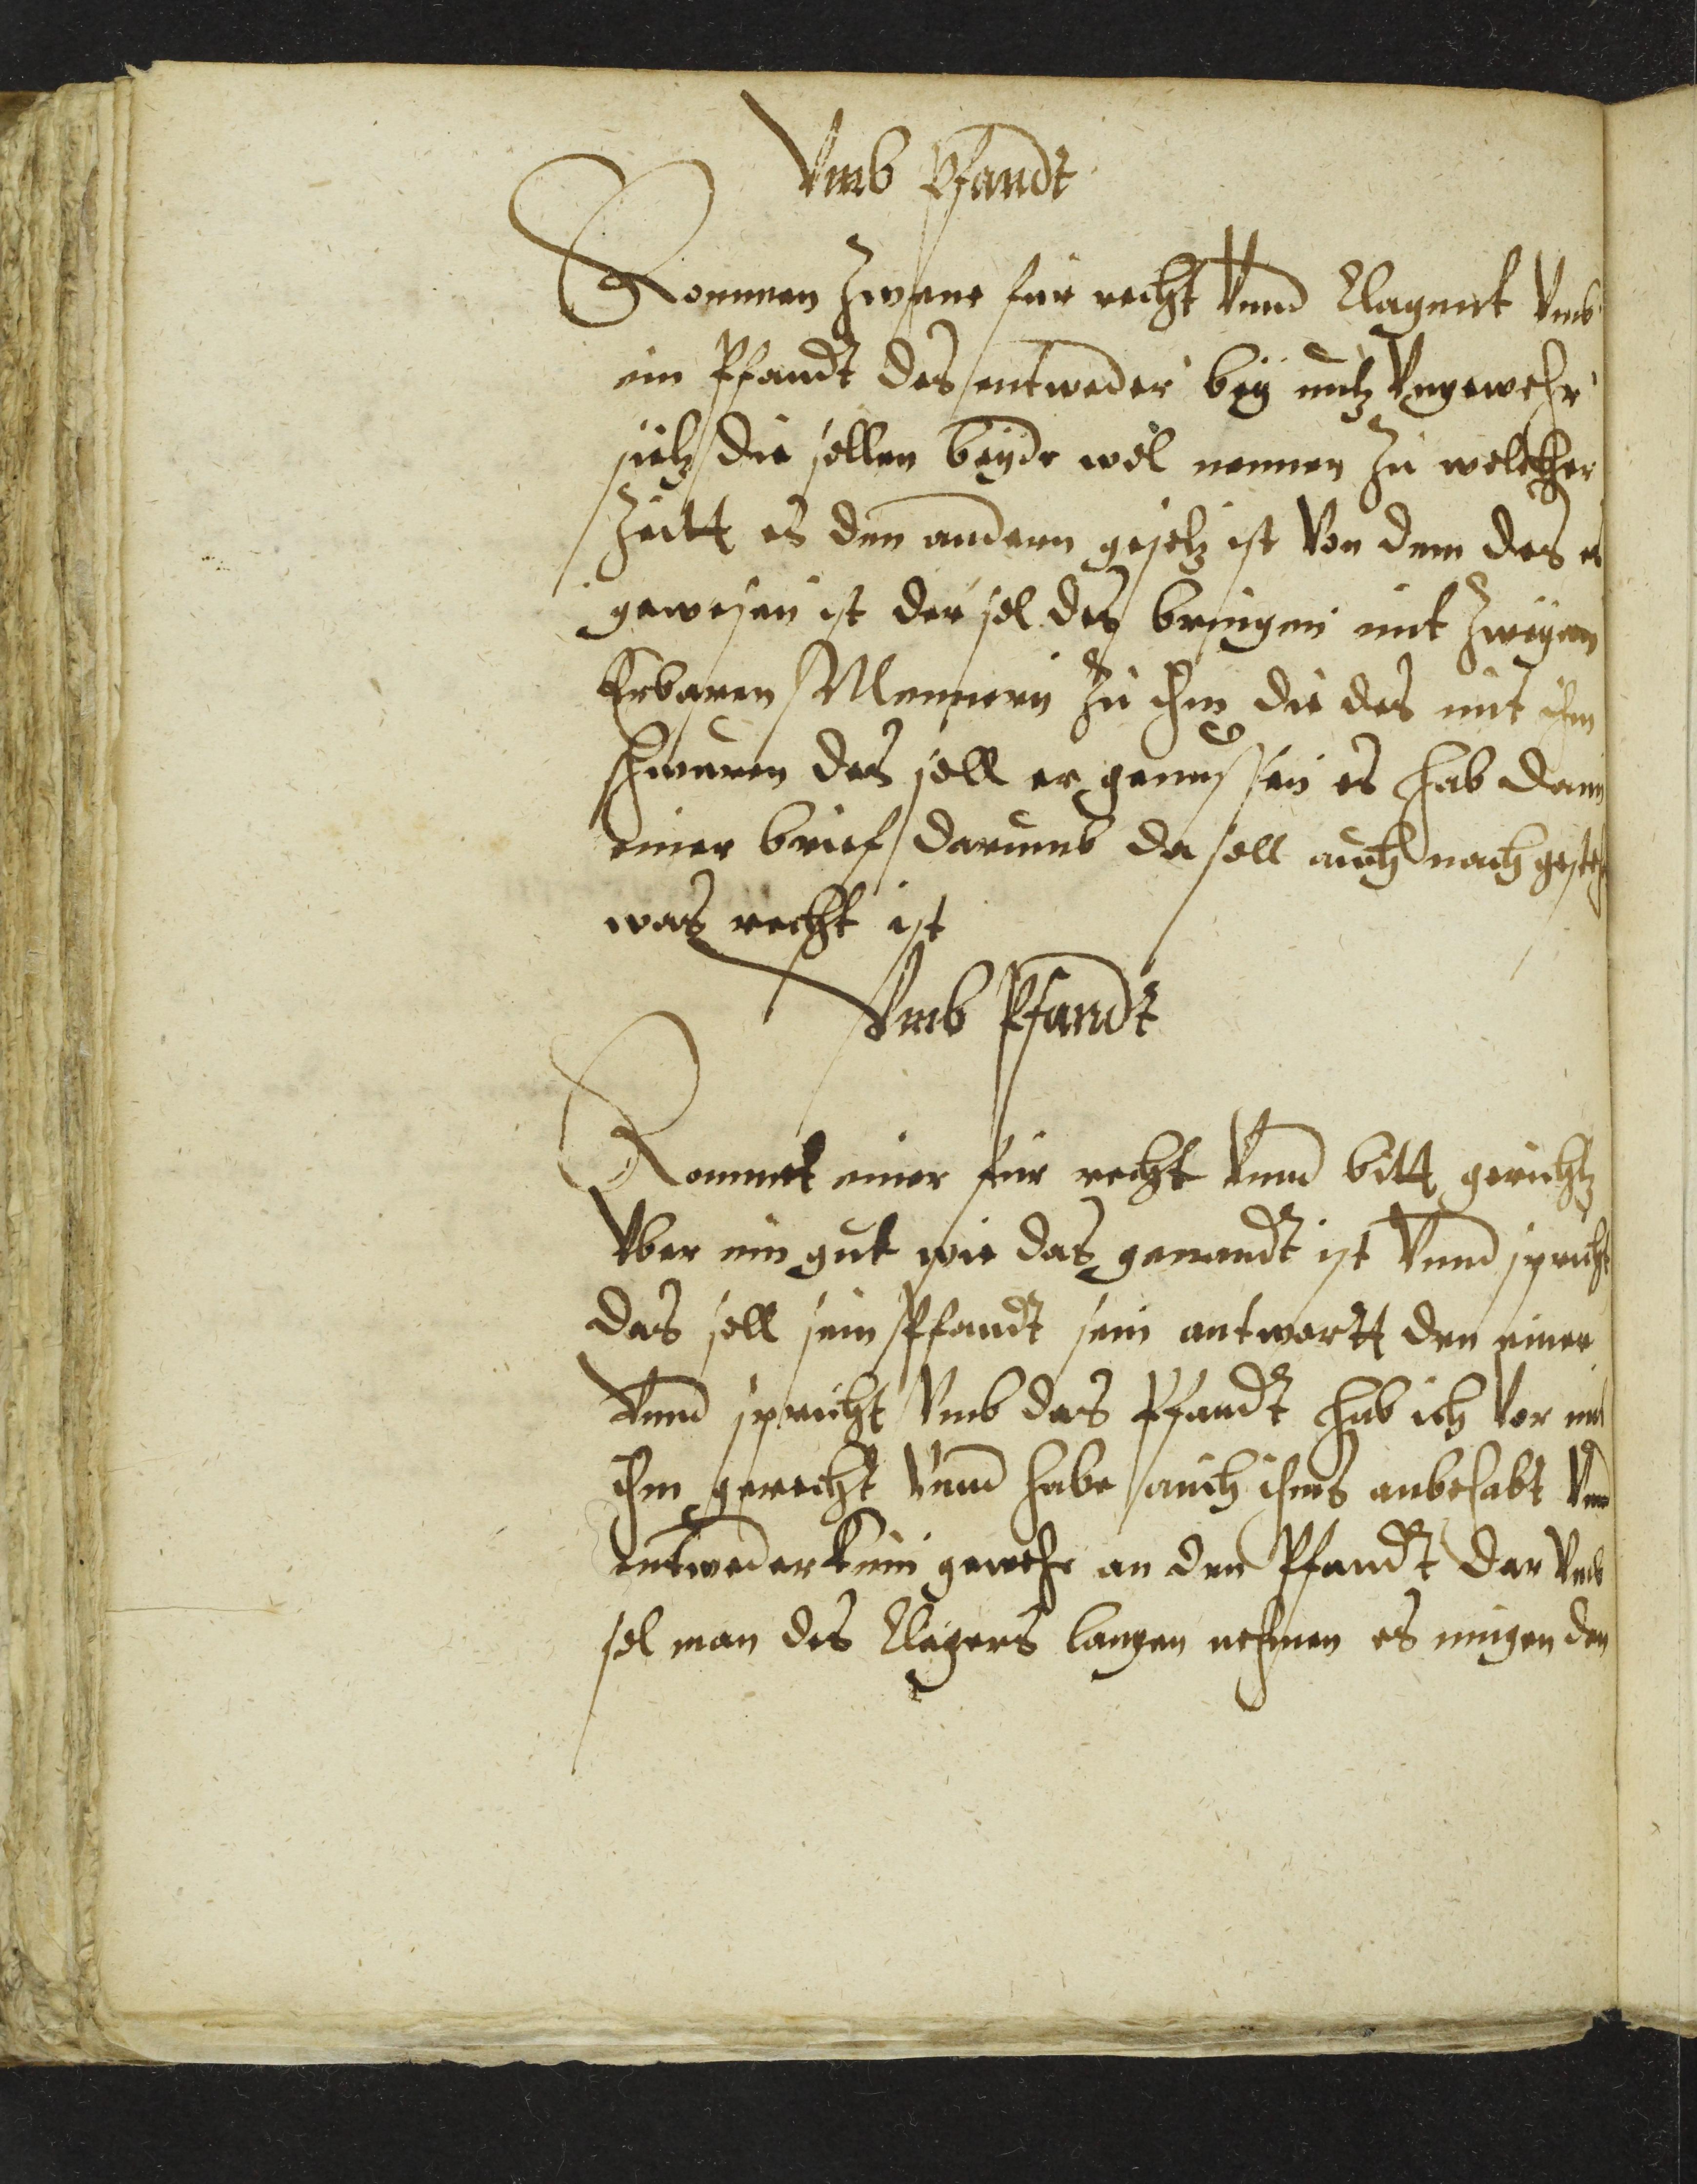 Vmb Pfandt
Kommen Zwene für recht Vnnd Clagent Vmb
ein Pfandt des entweder bey nutz Vngewehr
sitz die sollen beyde wol nennen Zu welcher
Zeitt es dem andern gesetz ist Von dem des es
gewesen ist der sol des bringen mit Zweyen
Erbaren Mennern Zu ihm die des mit ihm
schweren des soll er geniessen es hab dann
einer brief darumb da soll auch nach gesche
was recht ist
Vmb Pfandt
Kommet einer für recht Vnnd bitt gerichtz
Vber ein gut wie das genandt ist Vnnd spricht
das soll sein Pfandt sein antwortt den einer
Vnnd spricht Vmb das Pfandt hab ich Vor mit
ihm gerecht Vnnd habe auch ihms anbehabt Vnd
entweder kein gewehr an dem Pfandt dar Vmb
sol man des Clagers laugen nehmen es mügen den